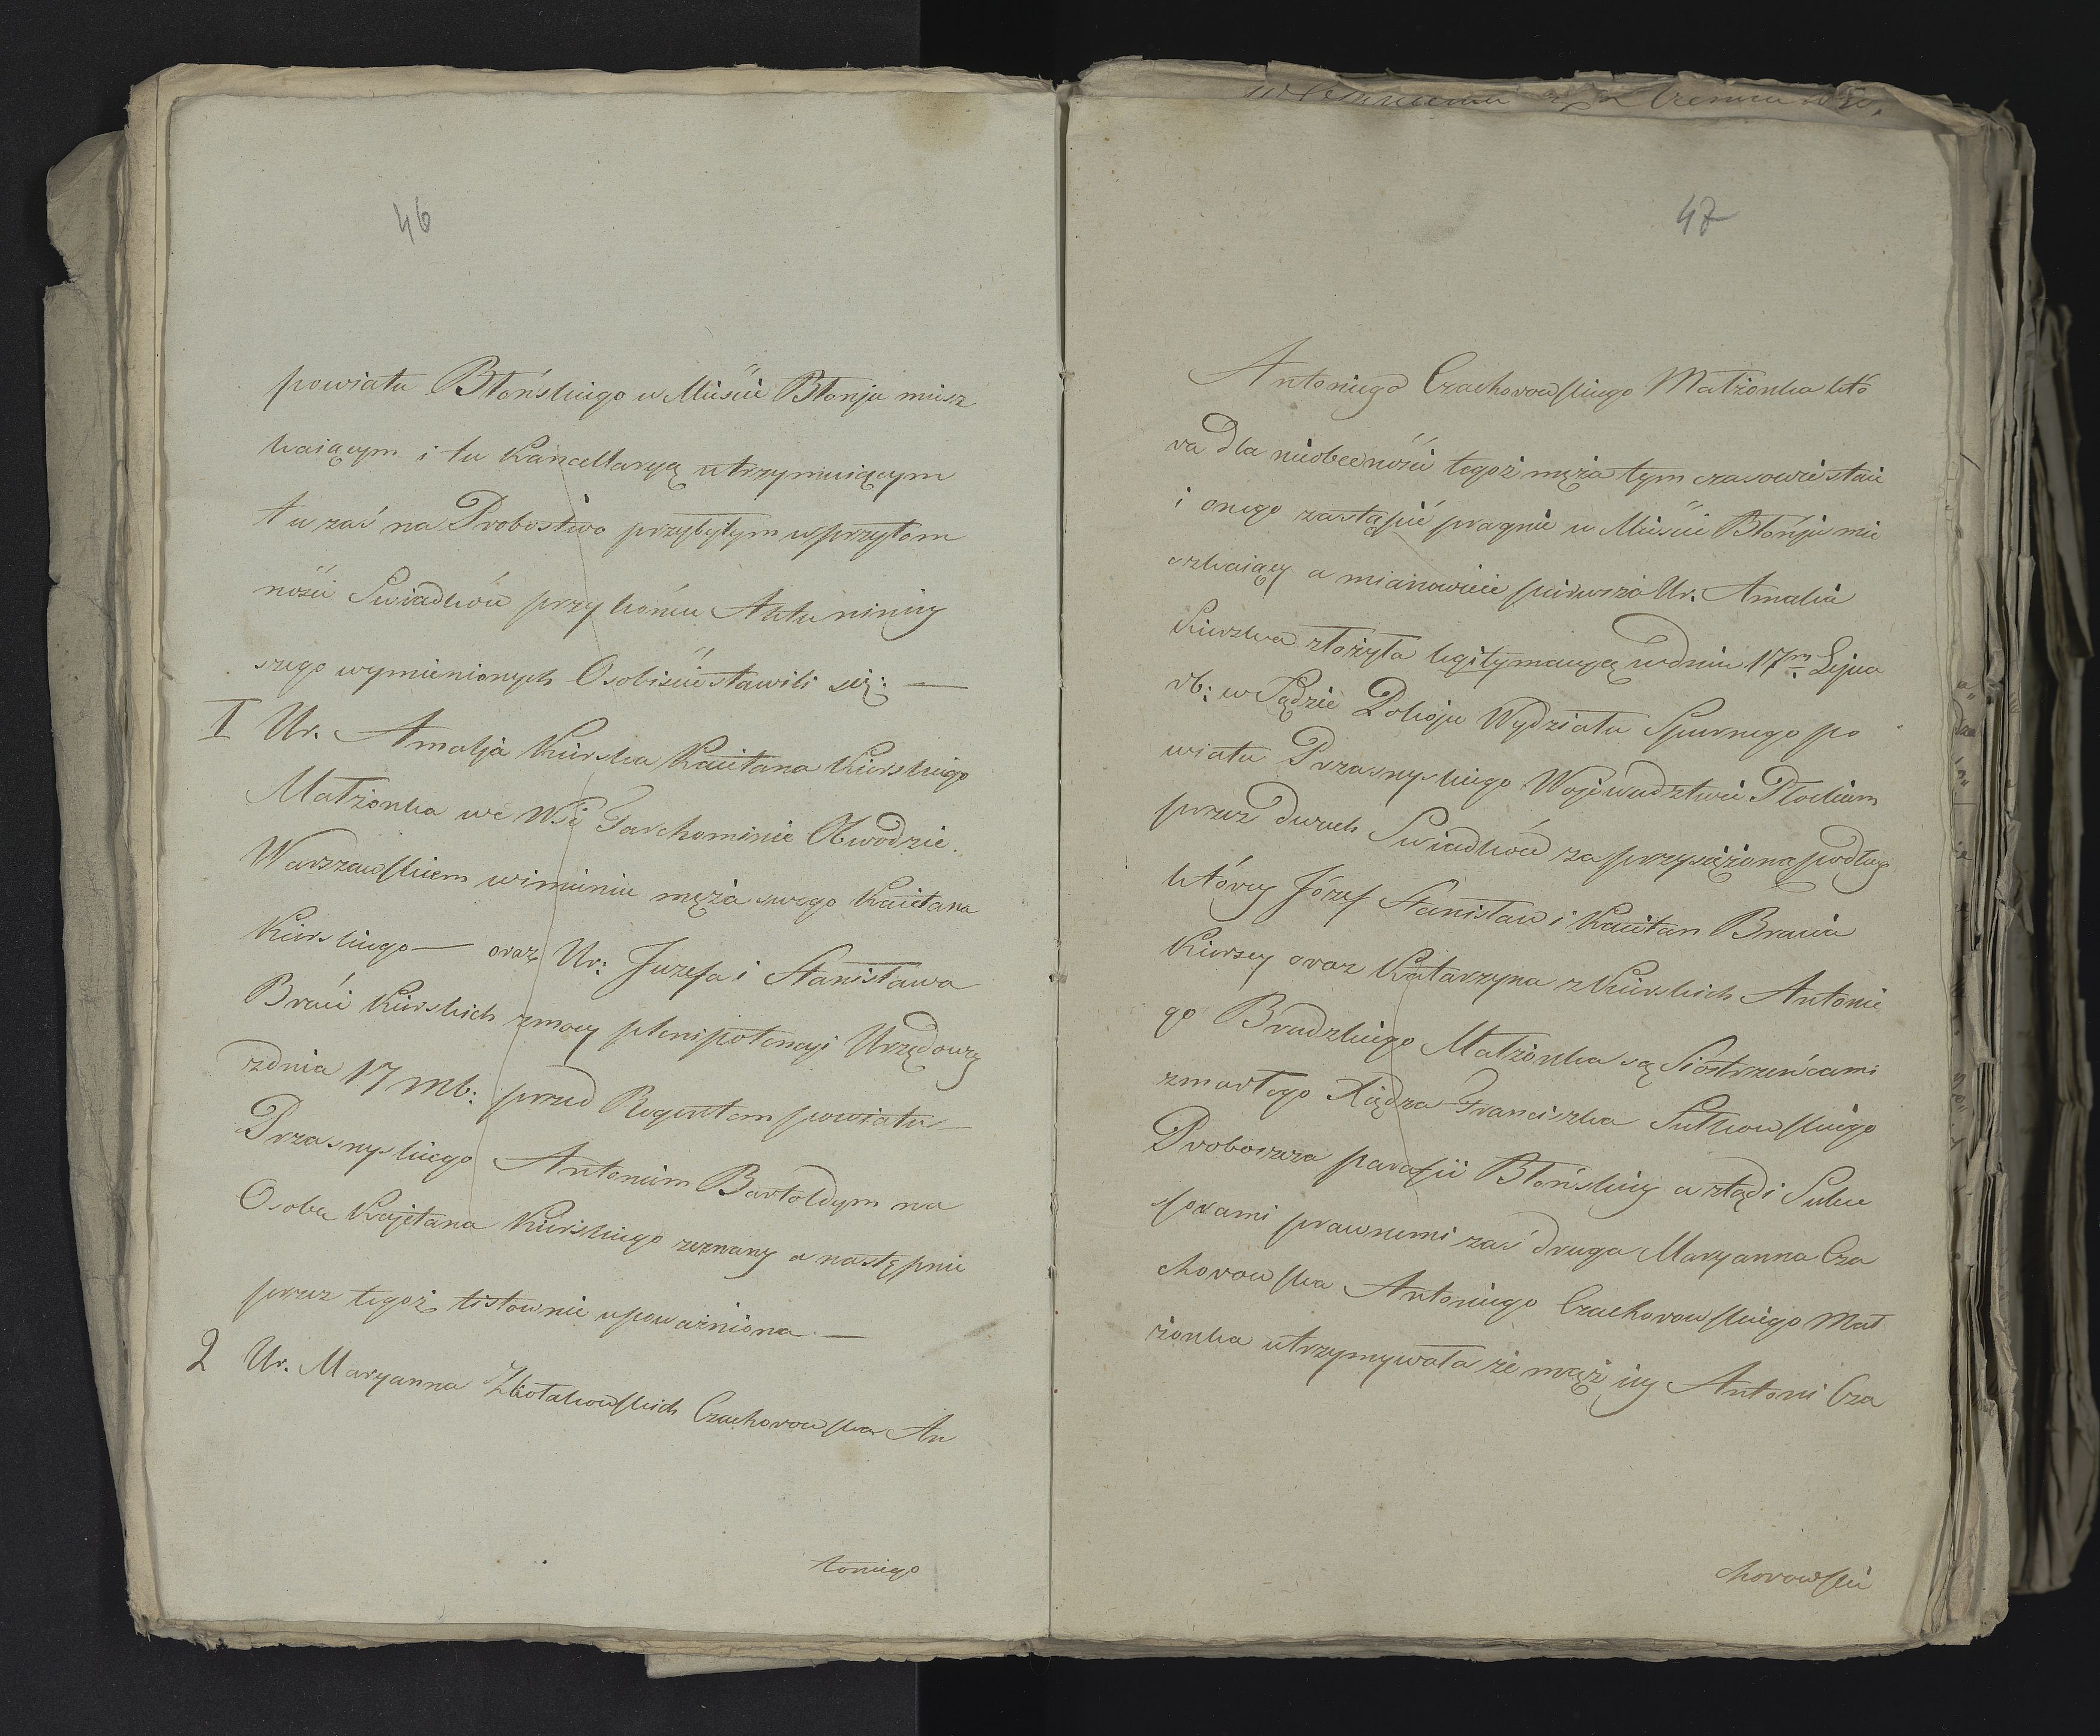 46
powiatu Błońskiego w Mieście Błonju miesz
kaiącym i tu Kancellaryą utrzymuiącym
tu zaś na Probostwo przybyłym w przytom
ności Swiadków przy końcu Aktu niniey
szego wymienionych Osobiście stawili się: —
I Ur. Amalja Kierska Kaietana Kierskiego
Małżonka we Wsi Tarchominie Obwodzie
Warszawskiem w imieniu męża swego Kaietana
Kierskiego — oraz Ur: Juzefa i Stanisława
Braci Kierskich z mocy plenipotencyi Urzędowey
z dnia 17 mb: przed Regentem powiatu —
Przasnyskiego Antonim Bartoldym na
Osobę Kajetana Kierskiego zeznaney a następnie
przez tegoż listownie upoważniona —
2 Ur. Maryanna Czachorowska An
toniego
47
Antoniego Czachorowskiego Małżonka któ
ra dla nieobecności tegoż męża tym czasowie staie
i onego zastąpić pragnie w Mieście Błonju mie
szkaiący a mianowicie pierwsza Ur. Amalia
Kierska złożyła legitymacyą w dniu 17m Lipca
rb: w Sądzie Pokoju Wydziału Spornego po
wiatu Przasnyskiego Wojewudztwie Płockiem
przez dwuch Swiadków zaprzysiężoną podług
którey Józef Stanisław i Kaietan Bracia
Kierscy oraz Katarzyna z Kierskich Antonie
go Brudzkiego Małżonka są Siostrzeńcami
zmarłego Xiędza Franciszka Sutkowskiego
Proboszcza parafii Błońskiey a ztąd i Sukce
sorami prawnemi zaś druga Maryanna Cza
chorowska Antoniego Czachorowskiego Mał
żonka utrzymywała że mąż iey Antoni Cza
chorowski